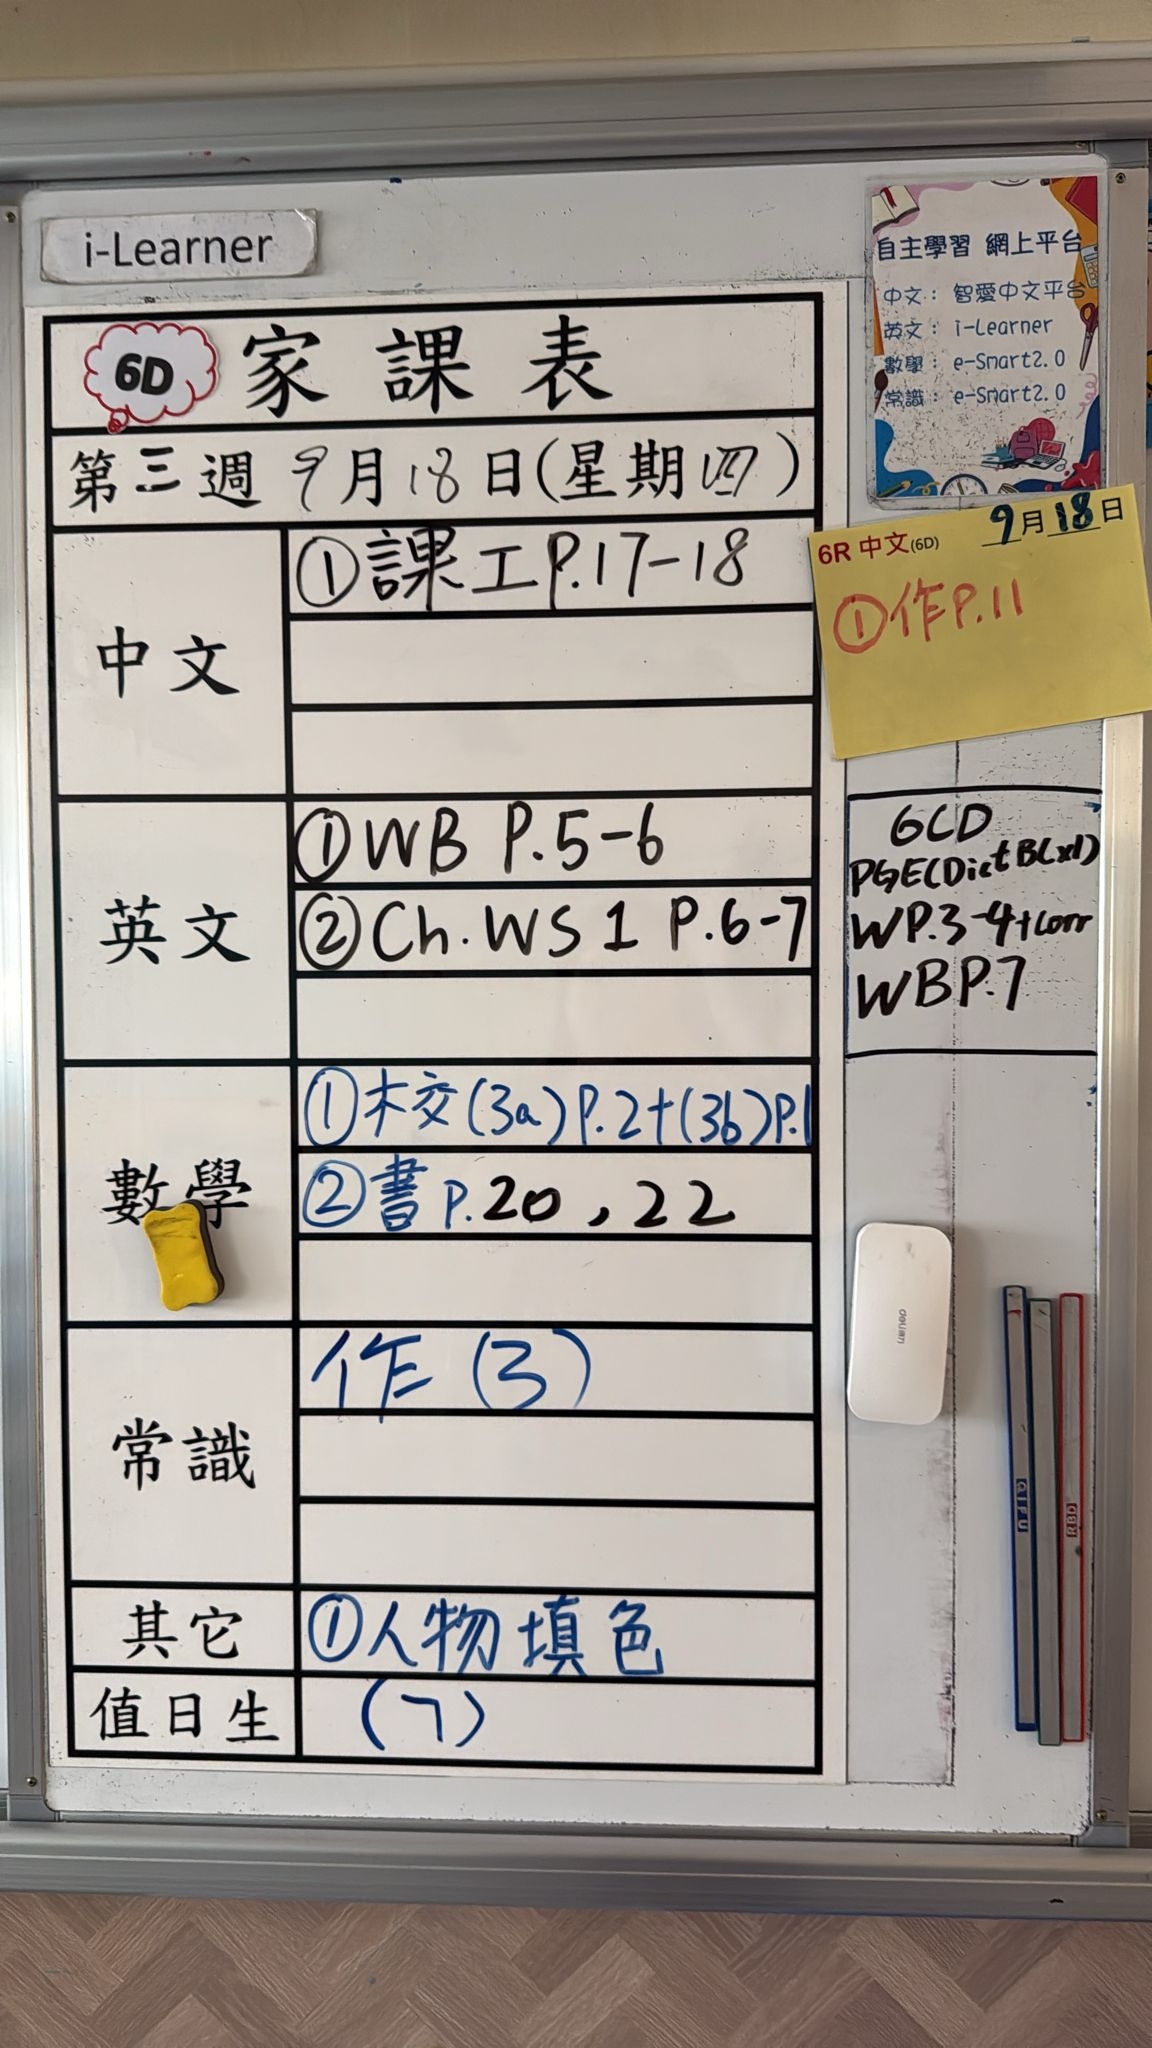 i-Learner
6D 家課表
第三週 9月18日(星期四)
中文
①課工P.17-18
英文
①WB P.5-6
②Ch. WS 1 P.6-7
數學
①木交(3a)P.2+(3b)P.1
②書P.20,22
常識
作(3)
其它
①人物填色
值日生
(7)
自主學習 網上平台
中文:智愛中文平台
英文:i-Learner
數學:e-Smart2.0
常識:e-Smart2.0
9月18日
6R 中文(6D)
①作P.11
6CD
PGE(Dict B(x1)
WP.3-4+Corr
WBP.7
deli
QIFU
RBD